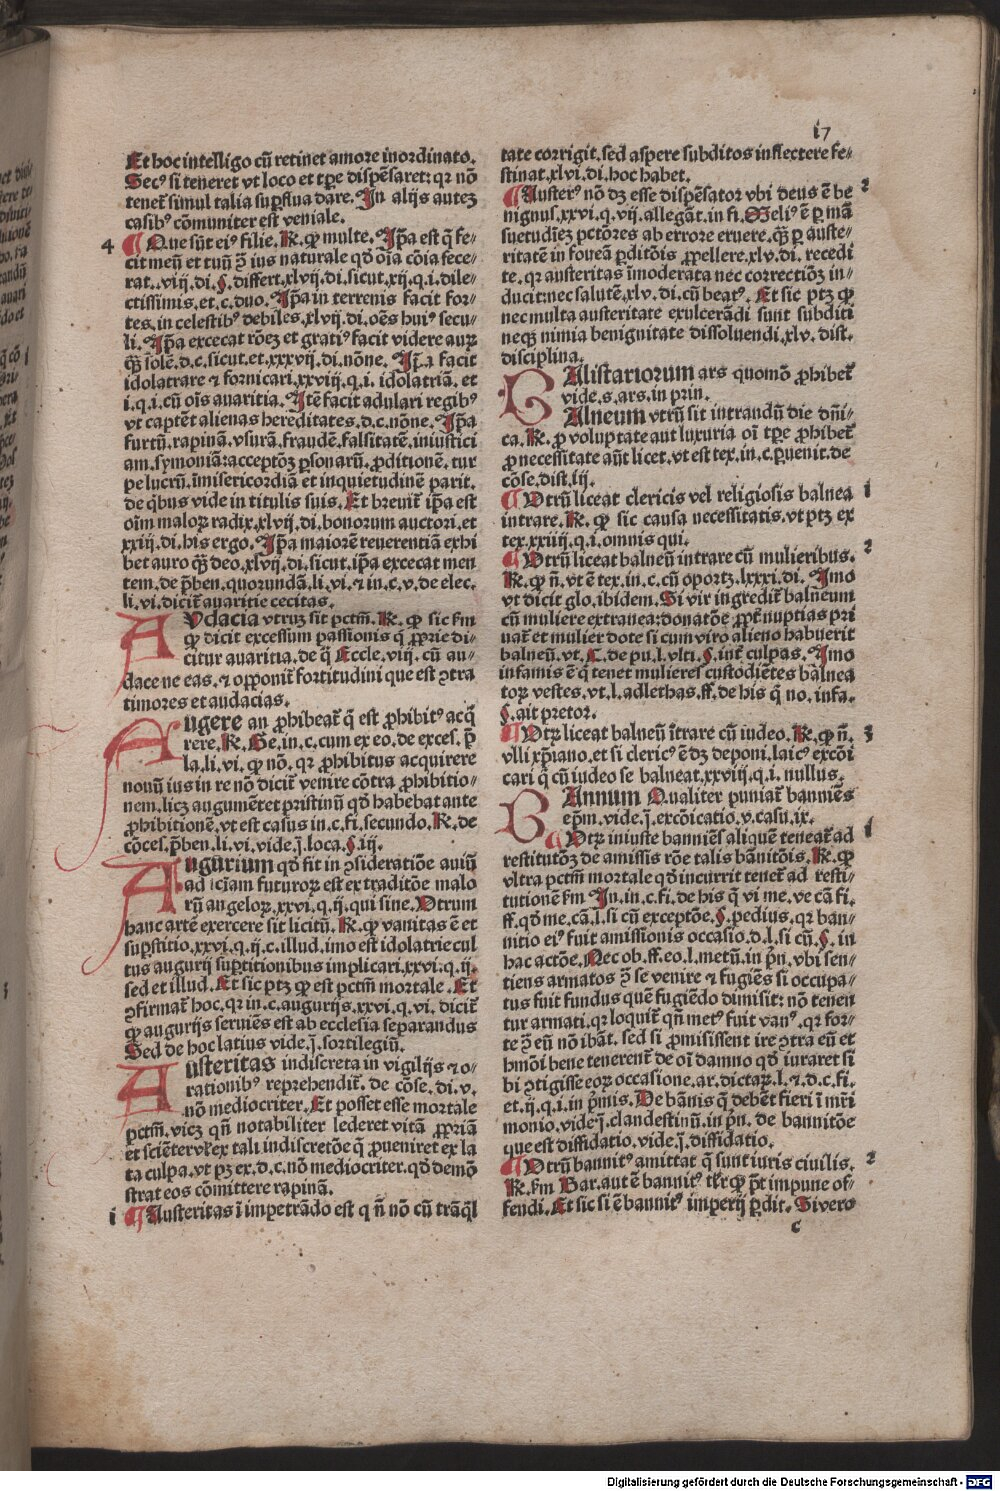 17
Et hoc intelligo cū retinet amore inordinato.
Secꝰ si teneret vt loco et tꝑe dispēsaret: qꝛ nō
tenet̉ simul talia suꝑflua dare. In alijs autez
casibꝰ cōmuniter est veniale.
4
¶ Que sūt eiꝰ filie. R̄. ꝙ multe. Ip̄a est q̄ fe-
cit meū et tuū ꝯ̄ ius naturale qd̓ oīa cōia fece-
rat. viij. di. §. differt. xlvij. di. sicut. xij. q. i. dile-
ctissimis. et. c. duo. Ip̄a in terrenis facit for-
tes. in celestibꝰ debiles. xlvij. di. oēs huiꝰ secu-
li. Ip̄a excecat rōez et gratiꝰ facit videre auꝝ
q̄ꝫ solē. d. c. sicut. et. xxxvij. di. nōne. Ip̄a facit
idolatrare ⁊ fornicari. xxviij. q. i. idolatriā. et
i. q. i. cū oīs auaritia. Itē facit adulari regibꝰ
vt captēt alienas hereditates. d. c. nōne. Ip̄a
furtū. rapinā. vsurā. fraudē. falsitatē. iniustici
am. symoniā: acceptōꝫ ꝑsonarū. ꝓditionē. tur
pe lucrū. īmisericordiā et inquietudinē parit.
de q̇bus vide in titulis suis. Et breuit̉ ip̄a est
oīm maloꝝ radix. xlvij. di. bonorum auctori. et
xxiij. di. his ergo. Ip̄a maiorē reuerentiā exhi
bet auro q̄ꝫ deo. xlvij. di. sicut. ip̄a excecat men
tem. de p̄ben. quorundā. li. vi. ⁊ in. c. v. de elec.
li. vi. dicit̉ auaritie cecitas.
AVdacia vtruꝫ sit pctm̄. R̄. ꝙ sic km̄
ꝙ dicit excessum passionis q̄ ꝓprie di-
citur auaritia. de q̄ Eccle. viij. cū au-
dace ne eas. ⁊ opponit̉ fortitudini que est ꝯtra
timores et audacias.
AUgere an ꝓhibeat̉ q̄ est ꝓhibitꝰ acq̇
rere. R̄. Ge. in. c. cum ex eo. de exces. p̄
la. li. vi. ꝙ nō. qꝛ ꝓhibitus acquirere
nouū ius in re nō dicit̉ venire cōtra ꝓhibitio-
nem. licꝫ augumētet pristinū qd̓ habebat ante
ꝓhibitionē. vt est casus in. c. fi. secundo. R̄. de
cōces. p̄ben. li. vi. vide. j̄. loca. §. iij.
AUgurium qd̓ fit in ꝯsideratiōe auiū
ad sciam futuroꝝ est ex traditōe malo
rū angeloꝝ. xxvi. q. ij. qui sine. Utrum
hanc artē exercere sit licitū. R̄. ꝙ vanitas ē et
suꝑstitio. xxvi. q. ij. c. illud. imo est idolatrie cul
tus augurij suꝑstitionibus implicari. xxvi. q. ij.
sed et illud. Et sic ptꝫ ꝙ est pctm̄ mortale. Et
ꝯfirmat̉ hoc. qꝛ in. c. augurijs. xxvi. q. vi. dicit̉
ꝙ augurijs seruiēs est ab ecclesia separandus
Sed de hoc latius vide. j̄. sortilegiū.
AUsteritas indiscreta in vigilijs ⁊ o-
rationibꝰ reprehendit̉. de cōse. di. v.
nō mediocriter. Et posset esse mortale
pctm̄. vicꝫ qn̄ notabiliter lederet vitā ꝓpriā
et sciēter vł ex tali indiscretōe q̄ ꝓueniret ex la
ta culpa. vt pꝫ ex. d. c. nō mediocriter. qd̓ demō
strat eos cōmittere rapinā.
i
¶ Austeritas ī impetrādo est q n̄ nō cū trāq̇l
tate corrigit. sed aspere subditos inflectere fe-
stinat. xlvi. di. hoc habet.
2
¶ Austerꝰ nō dꝫ esse dispēsator vbi deus ē be
nignus. xxvi. q. vij. allegāt. in fi. Meliꝰ ē ꝑ mā
suetudīez pctōres ab errore eruere. q̄ꝫ ꝑ auste-
ritatē in foueā ꝑditōis ꝓpellere. xlv. di. recedi
te. qꝛ austeritas īmoderata nec correctiōꝫ in-
ducit: nec salutē. xlv. di. cū beatꝰ. Et sic ptꝫ ꝙ
nec multa austeritate exulcerādi sunt subditi
necꝫ nimia benignitate dissoluendi. xlv. dist.
disciplina.
BAlistariorum ars quomō ꝓhibet̉
vide. s. ars. in prin.
BAlneum vtrū sit intrandū die dn̄i-
ca. R̄. ꝓ voluptate aut luxuria oī tꝑe ꝓhibet̉
ꝓ necessitate aūt licet. vt est tex. in. c. ꝑuenit. de
cōse. dist. iij.
1
¶ Utrū liceat clericis vel religiosis balnea
intrare. R̄. ꝙ sic causa necessitatis. vt ptꝫ ex
tex. xxiij. q. i. omnis qui.
2
¶ Utrū liceat balneū intrare cū mulieribus.
R̄. ꝙ n̄. vt ē tex. in. c. cū oportꝫ. lxxxi. di. Imo
vt dicit glo. ibidem. Si vir ingredit̉ balneum
cū muliere extranea: donatōe ꝓpt̉ nuptias pri
uat̉ et mulier dote si cum viro alieno habuerit
balneū. vt. C. de pu. l. vlti. §. int̉ culpas. Imo
infamis ē q̇ tenet mulieres custodiētes balnea
toꝝ vestes. vt. l. adlethas. ff. de his q̇ no. infa.
§. ait pretor.
3
¶ Utꝝ liceat balneū ītrare cū iudeo. R̄. ꝙ n̄.
vlli xp̄iano. et si clericꝰ ē dꝫ deponi. laicꝰ excōi
cari q̇ cū iudeo se balneat. xxviij. q. i. nullus.
BAnnum Qualiter puniat̉ banniēs
ep̄m. vide. j̄. excōicatio. v. casu. ix.
1
¶ Utꝝ iniuste banniēs aliquē teneat̉ ad
restitutōꝫ de amissis rōe talis bānitōis. R̄. ꝙ
vltra pctm̄ mortale qd̓ incurrit tenet̉ ad resti-
tutionē km̄ In. in. c. fi. de his q̄ vi me. ve cā fi.
ff. qd̓ me. cā. l. si cū exceptōe. §. pedius. qꝛ ban-
nitio eiꝰ fuit amissionis occasio. d. l. si cū. §. in
hac actōe. Nec ob. ff. eo. l. metū. in p̄n. vbi sen-
tiens armatos ꝯ̄ se venire ⁊ fugiēs si occupa-
tus fuit fundus quē fugiēdo dimisit: nō tenen
tur armati. qꝛ loquit̉ qn̄ metꝰ fuit vanꝰ. qꝛ for-
te ꝯ̄ eū nō ibāt. sed si ꝓmisissent ire ꝯtra eū et
hmōi bene tenerent̉ de oī damno qd̓ iuraret si
bi ꝯtigisse eoꝝ occasione. ar. dictaꝝ. l. ⁊. d. c. fi.
et. ij. q. i. in p̄mis. De bānis q̄ debēt fieri ī mr̄i
monio. vide. j̄. clandestinū. in p̄n. de bannitōe
que est diffidatio. vide. j̄. diffidatio.
2
¶ Utrū bannitꝰ amittat q̄ sunt iuris ciuilis.
R̄. km̄ Bar. aut ē bannitꝰ tlr̄ ꝙ p̄t impune of-
fendi. Et sic si ē bannitꝰ imperij ꝑdit. Si vero
c
Digitalisierung gefördert durch die Deutsche Forschungsgemeinschaft - DFG